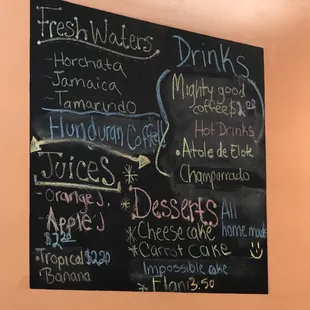 Fresh Waters
- Horchata
- Jamaica
- Tamarindo
Hunduran Coffee!
Juices
- Orange J.
- Apple J
$2.20
- Tropical $2.20
Banana
Drinks
Mighty good
coffee $2.00
Hot Drinks
• Atole de Elote
Champurrado
Desserts
All
home made
Cheese cake
Carrot Cake
Impossible cake
Flan 3.50